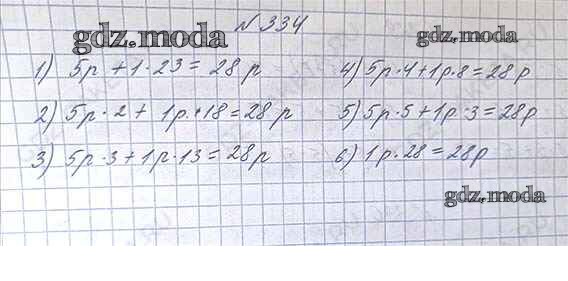 №334
gdz.moda
gdz.moda
1) 5р + 1·23 = 28 р
2) 5р·2 + 1р·18 = 28 р
3) 5р·3 + 1р·13 = 28р
4) 5р·4 + 1р·8 = 28 р
5) 5р·5 + 1р·3 = 28р
6) 1р·28 = 28р
gdz.moda